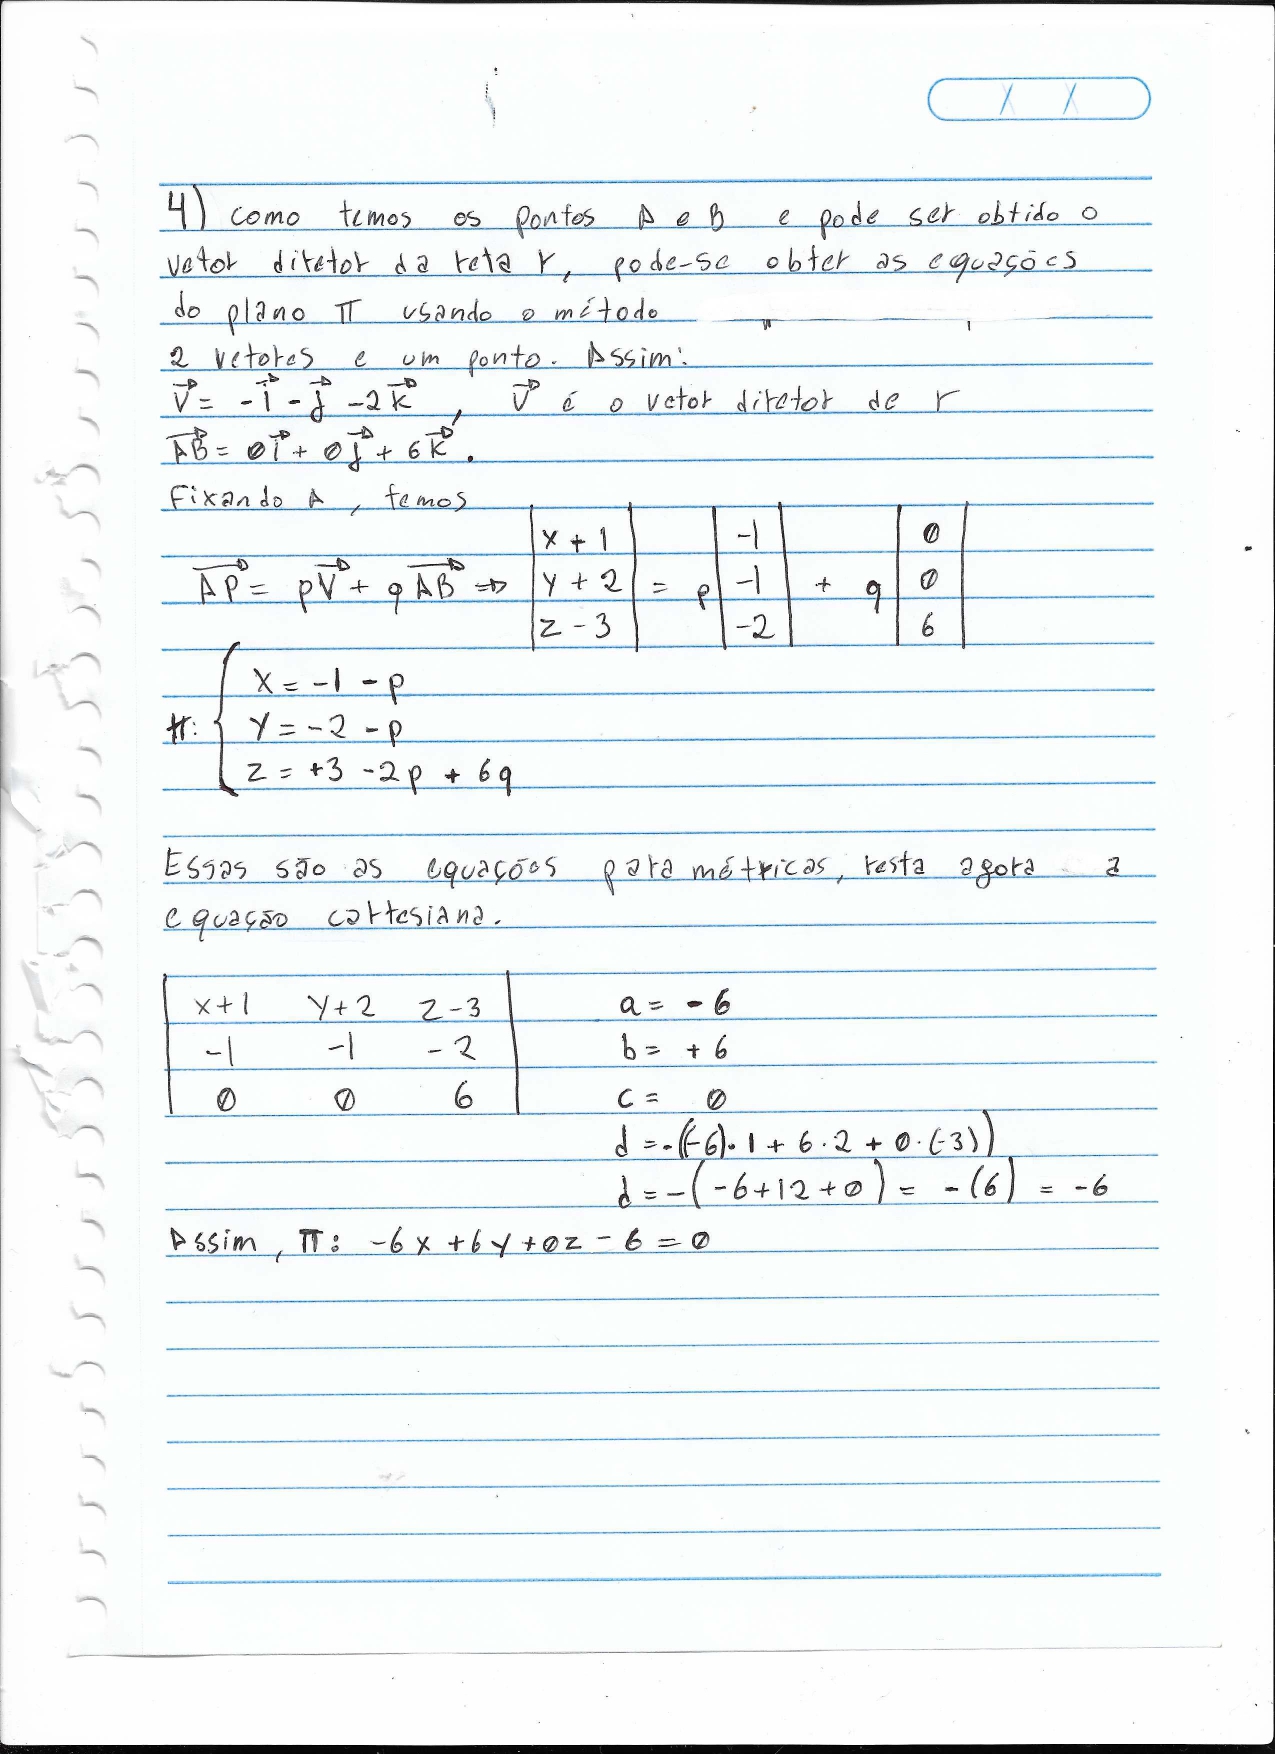 4) como temos os pontos A e B e pode ser obtido o
vetor diretor da reta r, pode-se obter as equações
do plano π usando o método
2 vetores e um ponto. Assim:
V⃗ = -i⃗ - j⃗ -2k⃗, V⃗ é o vetor diretor de r
AB⃗ = 0i⃗ + 0j⃗ + 6k⃗.
Fixando A, temos
AP⃗ = pV⃗ + qAB⃗ ⇒ |x+1 y+2 z-3| = p |-1 -1 -2| + q |0 0 6|
π: { x = -1 - p
y = -2 - p
z = +3 -2p + 6q
Essas são as equações paramétricas, resta agora a
equação cartesiana.
x+1 y+2 z-3 a = -6
-1 -1 -2 b = +6
0 0 6 c = 0
d = -((-6)·1 + 6·2 + 0·(-3))
d = -(-6+12+0) = -(6) = -6
Assim, π: -6x+6y+0z-6=0